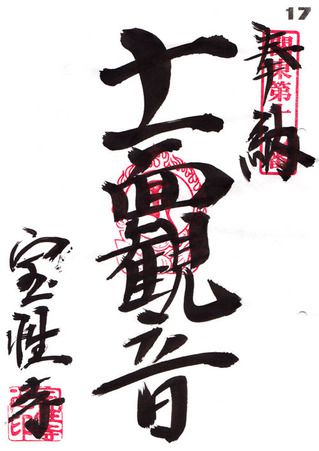 17
奉納
関東第十
十一面観音
宝性寺